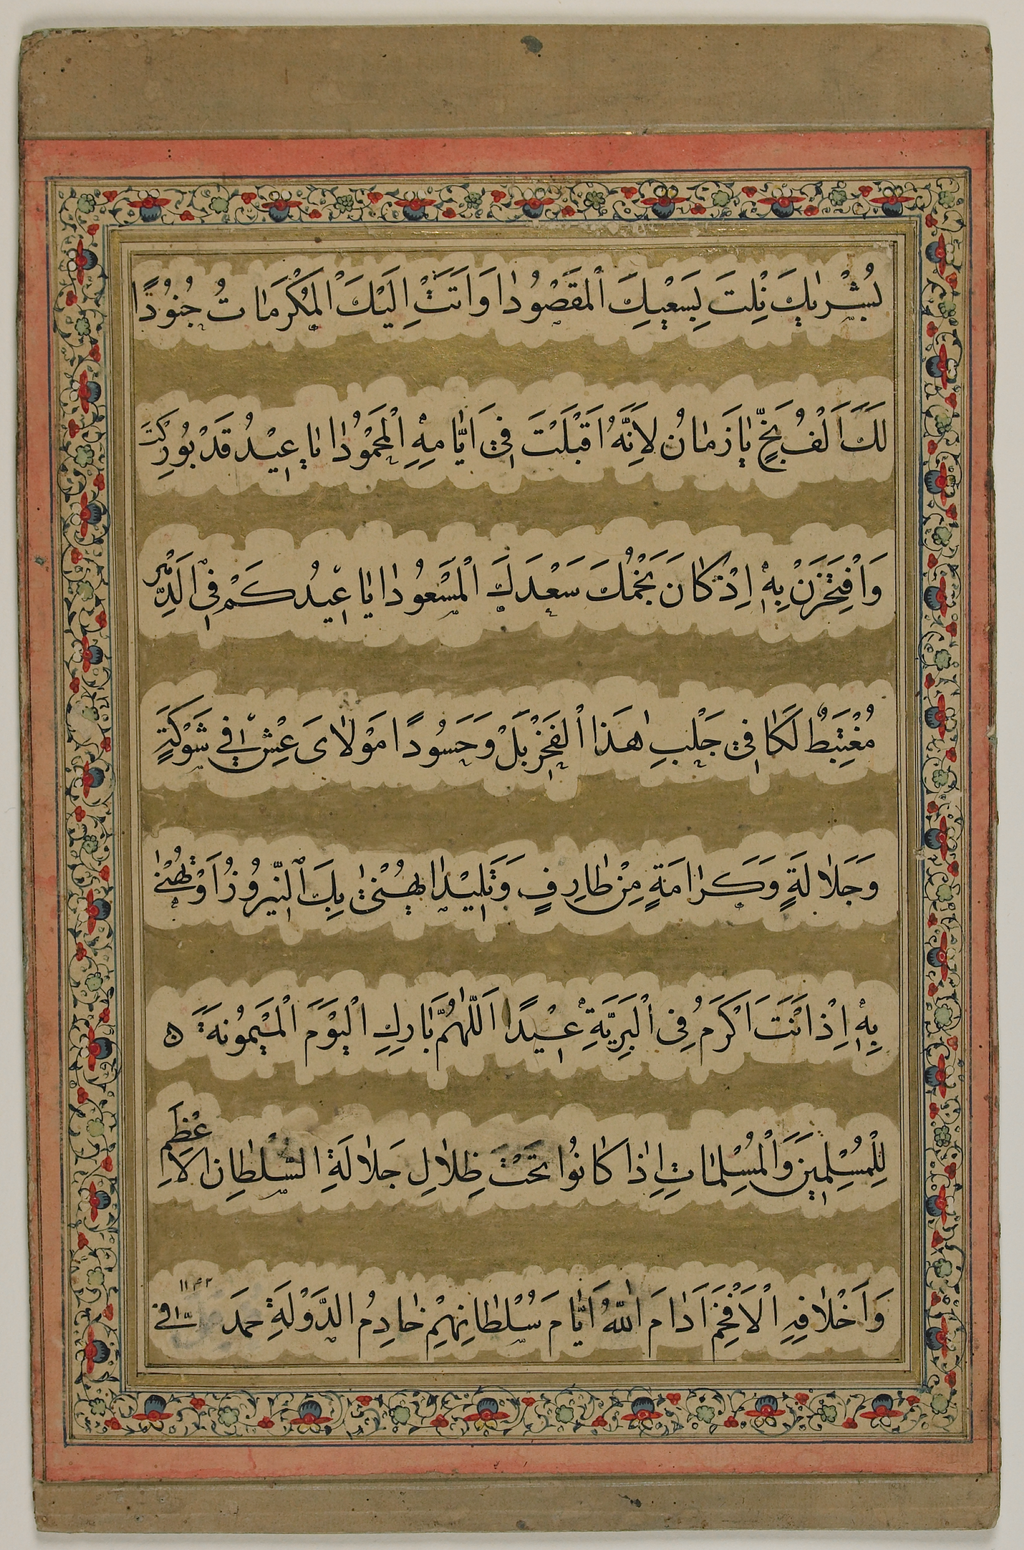 بُشْرٰيكَ نِلْتَ بِسَعْيِكَ الْمَقْصُودٰا وَاَتَتْ اِلَيْكَ الْمَكْرَمٰاتُ جُنُودًا
لَكَ اَلْفُ بَخٍّ يٰا زَمٰانُ لِاَنَّهُ اَقْبَلْتَ فِي اَيّٰامِهِ الْمَحْمُودٰا يٰا عِيْدُ قَدْ بُورِكْتَ
وَافْتَخِرَنْ بِهِ اِذْ كٰانَ نَجْمُكَ سَعْدَكَ الْمَسْعُودٰا يٰا عِيدُ كَمْ فِي الدَّهْرِ
مُغْتَبَطٌ لَكٰا فِي جَلْبِ هٰذَا الْفَخْرِ بَلْ وَحَسُودًا مَوْلٰاىَ عِشْ فِي شَوْكَةٍ
وَجَلٰالَةٍ وَكَرٰامَةٍ مِنْ طٰارِفٍ وَتَلِيْدٰا يُهَنّىٰ بِكَ النَّيْرُوزُ اَوْ تُهَنّىٰ
بِهِ اِذْ اَنْتَ اَكْرَمُ فِى الْبَرِيَّةِ عِيْدًا اَللّٰهُمَّ بٰارِكِ الْيَوْمَ الْمَيْمُونَةَ ۵
لِلْمُسْلِمِيْنَ وَالْمُسْلِمٰاتِ اِذٰا كٰانُوا تَحْتَ ظِلٰالِ جَلٰالَةِ السُّلْطٰانِ الْاَعْظَمِ
وَاَخْلٰافِهِ الْاَفْخَمِ اَدٰامَ اللّٰهُ اَيّٰامَ سُلْطٰانِهِمْ خٰادِمُ الدَّوْلَةِ محمد